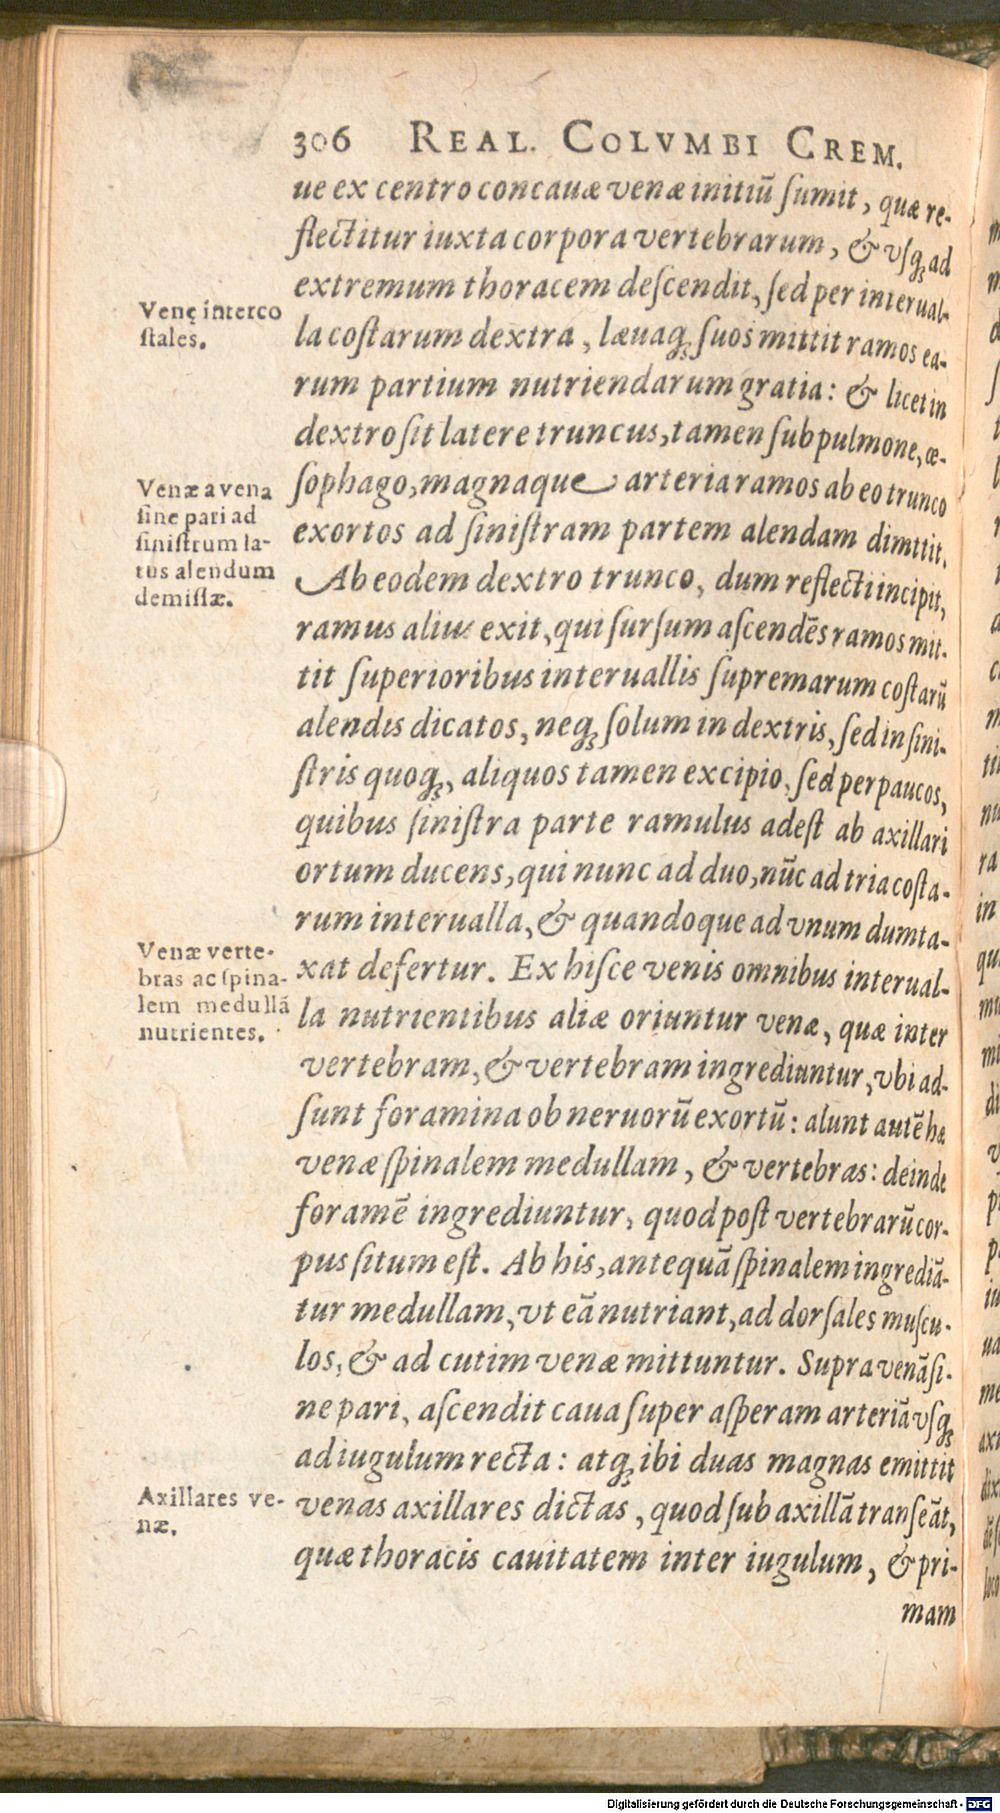 306 REAL. COLVMBI CREM.
ue ex centro concauæ venæ initiũ ſumit, quæ re-
flectitur iuxta corpora vertebrarum, & vſq; ad
extremum thoracem deſcendit, ſed per interual-
Venę interco
ſtales.
la coſtarum dextra, læuaq; ſuos mittit ramos ea-
rum partium nutriendarum gratia: & licet in
dextro ſit latere truncus, tamen ſub pulmone, œ-
Venæ a vena
ſine pari ad
ſiniſtrum la-
tus alendum
demiſſæ.
ſophago, magnaque arteria ramos ab eo trunco
exortos ad ſiniſtram partem alendam dimittit.
Ab eodem dextro trunco, dum reflecti incipit,
ramus alius exit, qui ſurſum aſcendẽs ramos mit-
tit ſuperioribus interuallis ſupremarum coſtarũ
alendis dicatos, neq; ſolum in dextris, ſed in ſini-
ſtris quoq;, aliquos tamen excipio, ſed perpaucos,
quibus ſiniſtra parte ramulus adeſt ab axillari
ortum ducens, qui nunc ad duo, nũc ad tria coſta-
rum interualla, & quandoque ad vnum dumta-
Venæ verte-
bras ac ſpina-
lem medullã
nutrientes.
xat defertur. Ex hiſce venis omnibus interual-
la nutrientibus aliæ oriuntur venæ, quæ inter
vertebram, & vertebram ingrediuntur, vbi ad-
ſunt foramina ob neruorũ exortũ: alunt autẽ hæ
venæ ſpinalem medullam, & vertebras: deinde
foramẽ ingrediuntur, quod poſt vertebrarũ cor-
pus ſitum eſt. Ab his, antequã ſpinalem ingrediã-
tur medullam, vt eã nutriant, ad dorſales muſcu-
los, & ad cutim venæ mittuntur. Supra venã ſi-
ne pari, aſcendit caua ſuper aſperam arteriã vſq;
ad iugulum recta: atq; ibi duas magnas emittit
Axillares ve-
næ.
venas axillares dictas, quod ſub axillã tranſeãt,
quæ thoracis cauitatem inter iugulum, & pri-
mam
Digitalisierung gefördert durch die Deutsche Forschungsgemeinschaft - DFG